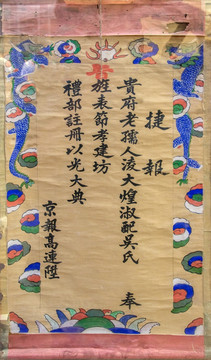 捷報
貴府老孺人淩大煌淑配吳氏 奉
旌表節孝建坊
禮部註冊以光大典
京報高連陞